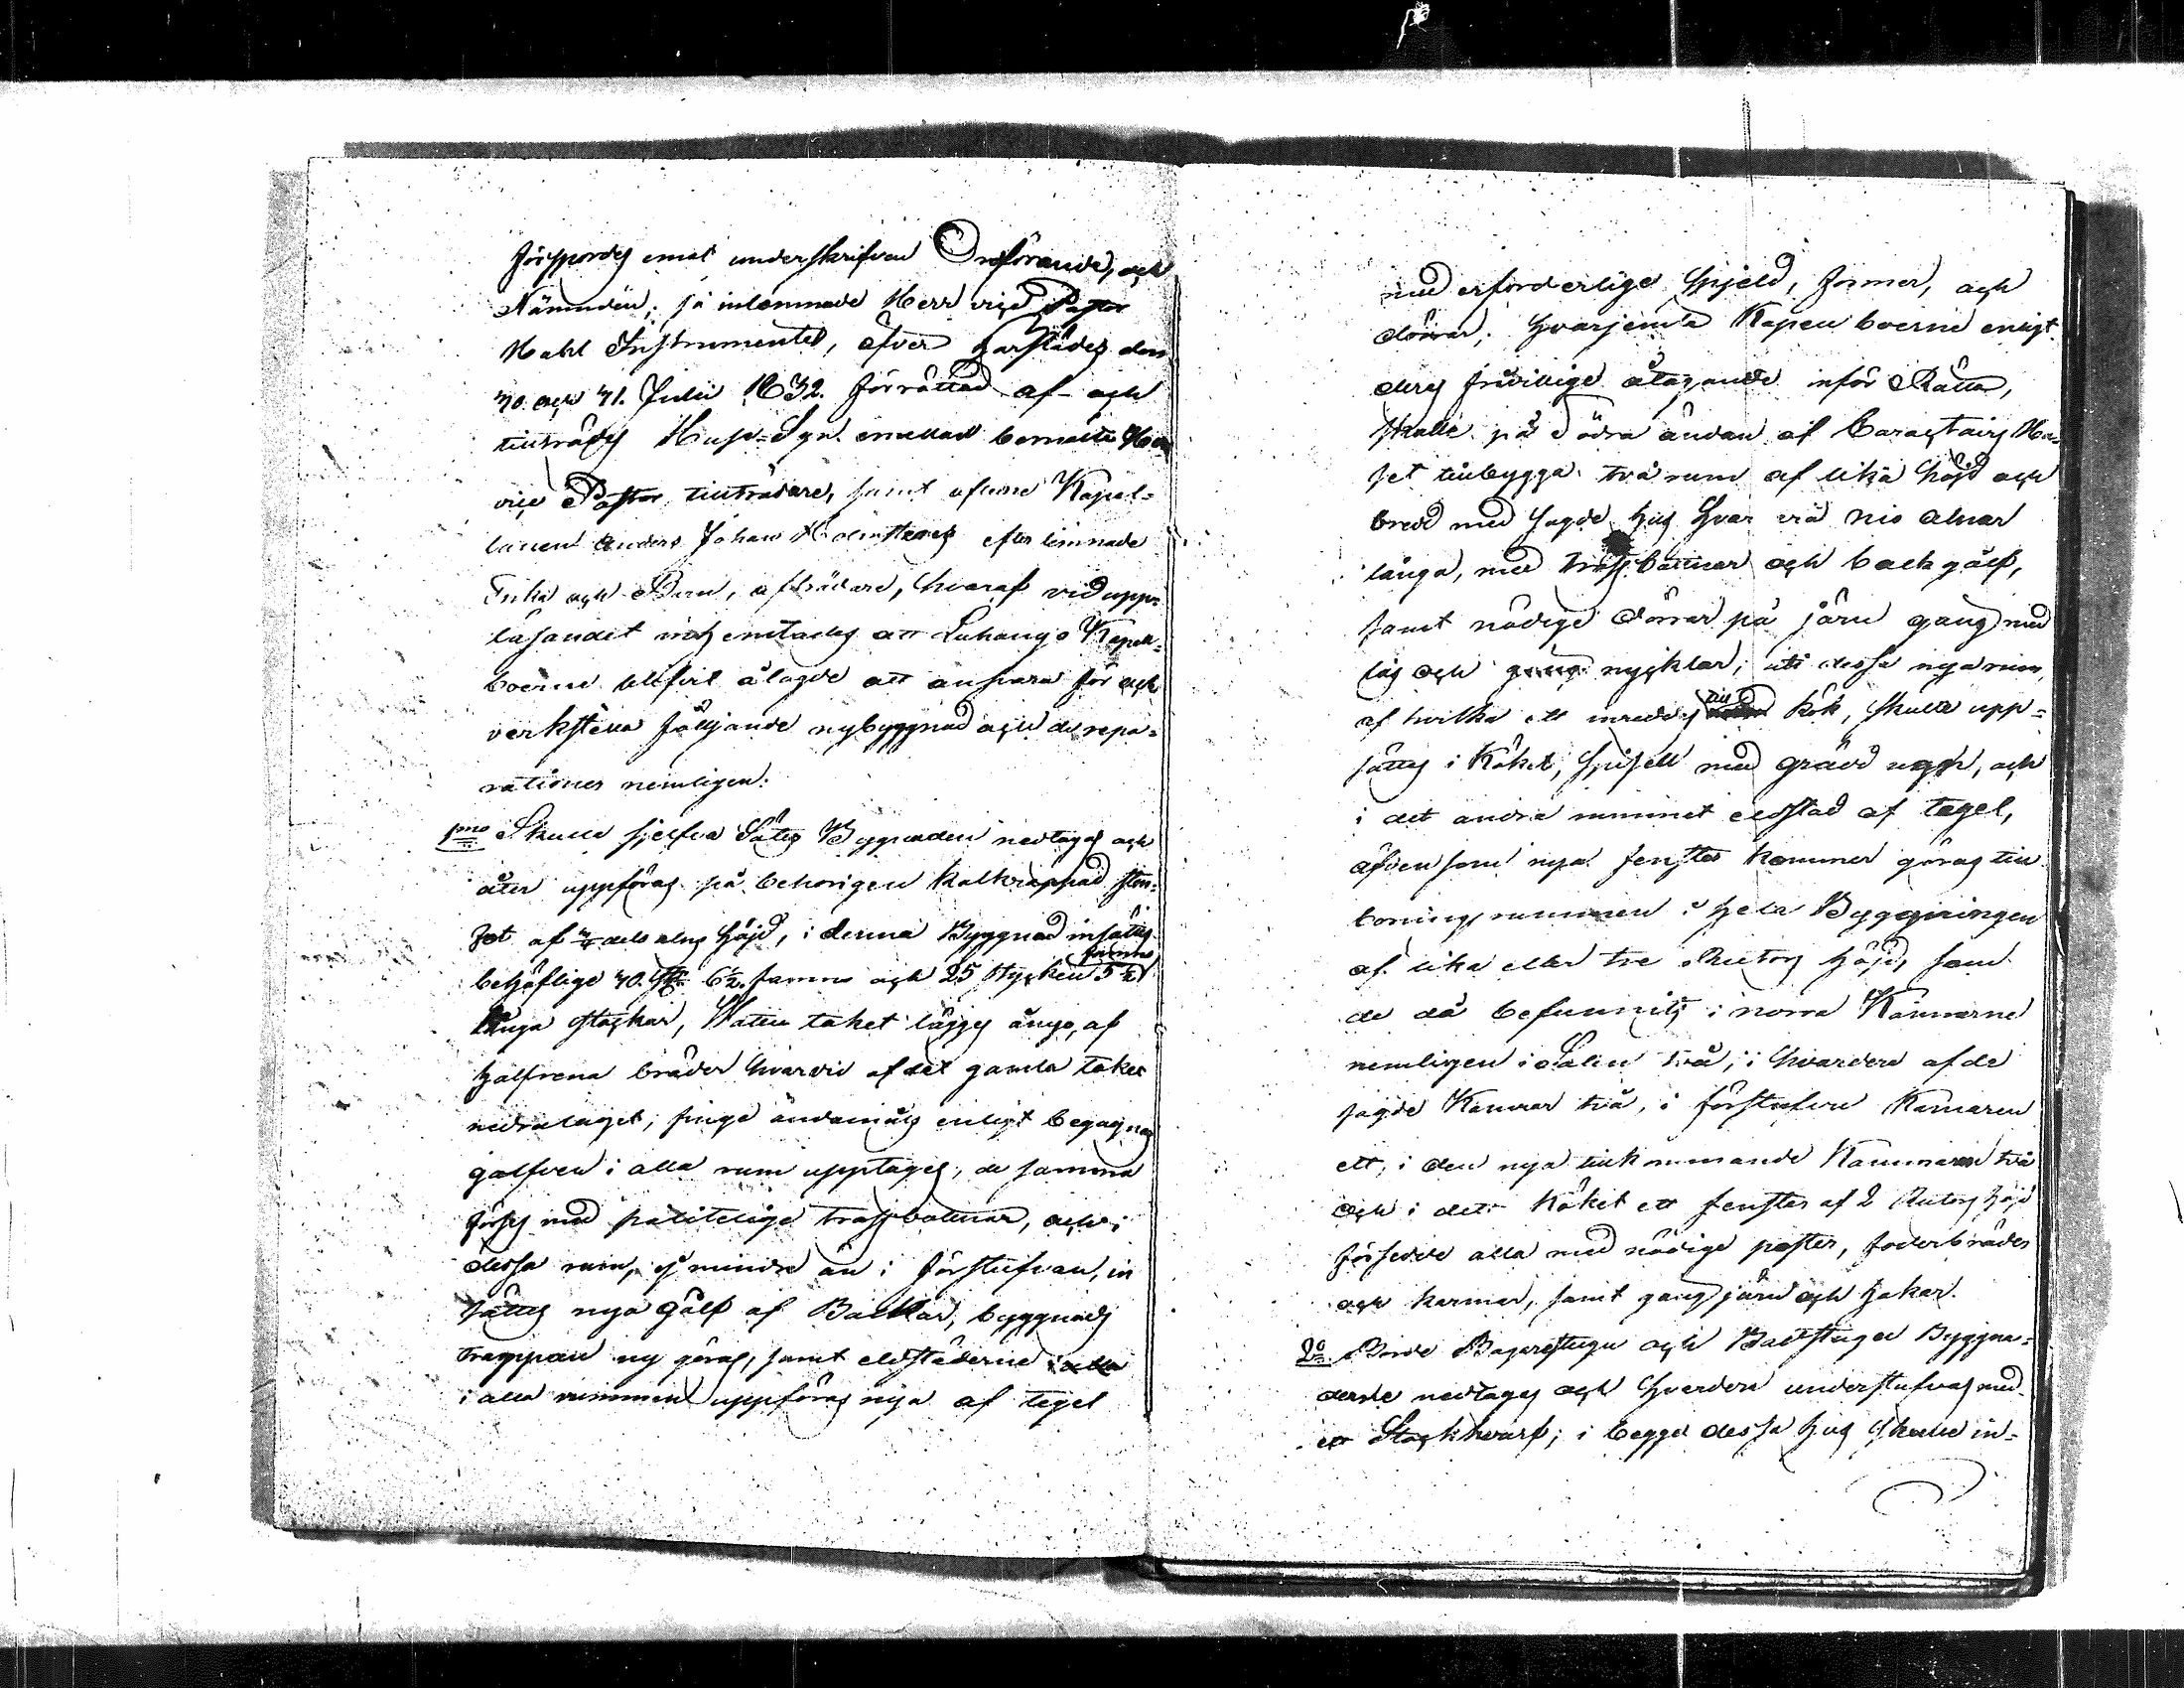 förspordes emot underskrifven Ordförande, och
Nämnden; så inlemnade Herr vice Pastor
Hahl Instrumentet, öfver härstädes den
70. och 71. Julii 1832. förrättad af- och
tillträdes Huse-Syn emellan bemälte Herr
vice Pastor tillträdare, samt aflidne Kapel-
lanen Anders Johan efterlemnade
Enka och Barn, afträdare, hvaraf vid upp-
läsandet inhemtades att Luhango Kapell-
boerne blifvit ålagde att ansvara för och
verkställa följande nybyggnad och de repa-
rationer nemligen:
1mo Skulle sjelfva Sätes Byggnaden nedtagas och
åter uppföras på behörigen kalkrappad sten-
fot af dels alns höjd, i denna Byggnad insättes
behöflige 70. st. 6½ famns och 25 stycken 5½ famns
långa stockar, Watten taket lägges ånyo, af
halfrena bräder hvarvid af det gamla taket
nedra laget, finge ändamåls enligt begagnas
golfven i alla rum upptages, de samma
förses med pålitelige trossbottnar, och i
dessa rum, ej mindre än i förstufvan, in
sättes nya golf af Balkar, byggnads
trappan ny göras, samt eldstäderne
i alla rummen uppföras nya af tegel
med erforderlige spjeld, former, och
dörrar; hvarjemte Kapellboerne enligt
deras frivillige åtagande inför Rätta,
skulle på Södra ändan af Caractairs Hu-
set tillbygga två rum af lika höjd och
bredd med sagde hus hvar era nio alnar
långa, med trossbottnar och balk golf,
samt nödige dörrar på järn gang med
lås och nycklar; uti dessa nya rum,
af hvilka ett inredes till Kök, skulle upp-
sättes i Köket, spisell med gräddugn, och
i det andra rummet eldstad af tegel,
äfvensom nya fenster kommer göras till
boningsrummen i hela Byggningen
af lika eller tre Rutors höjd, som
de då befunnits i norra Kamrarne
nemligen i Salen två, i hvardera af de
sagde Kamrar två, i förstufvu Kamaren
ett, i den nya tillkommande Kammaren två
och i det Köket ett fenster af 2 Rutors höjd
försedde alla med nödige poster, foderbräder
och karmar, samt gang järn och hakar.
2o Borde Bagarestugu och Badstugu Byggna-
derne nedtagas och hvardera understufvas med
ett Stockhvarf; i begge dessa hus skulle in-